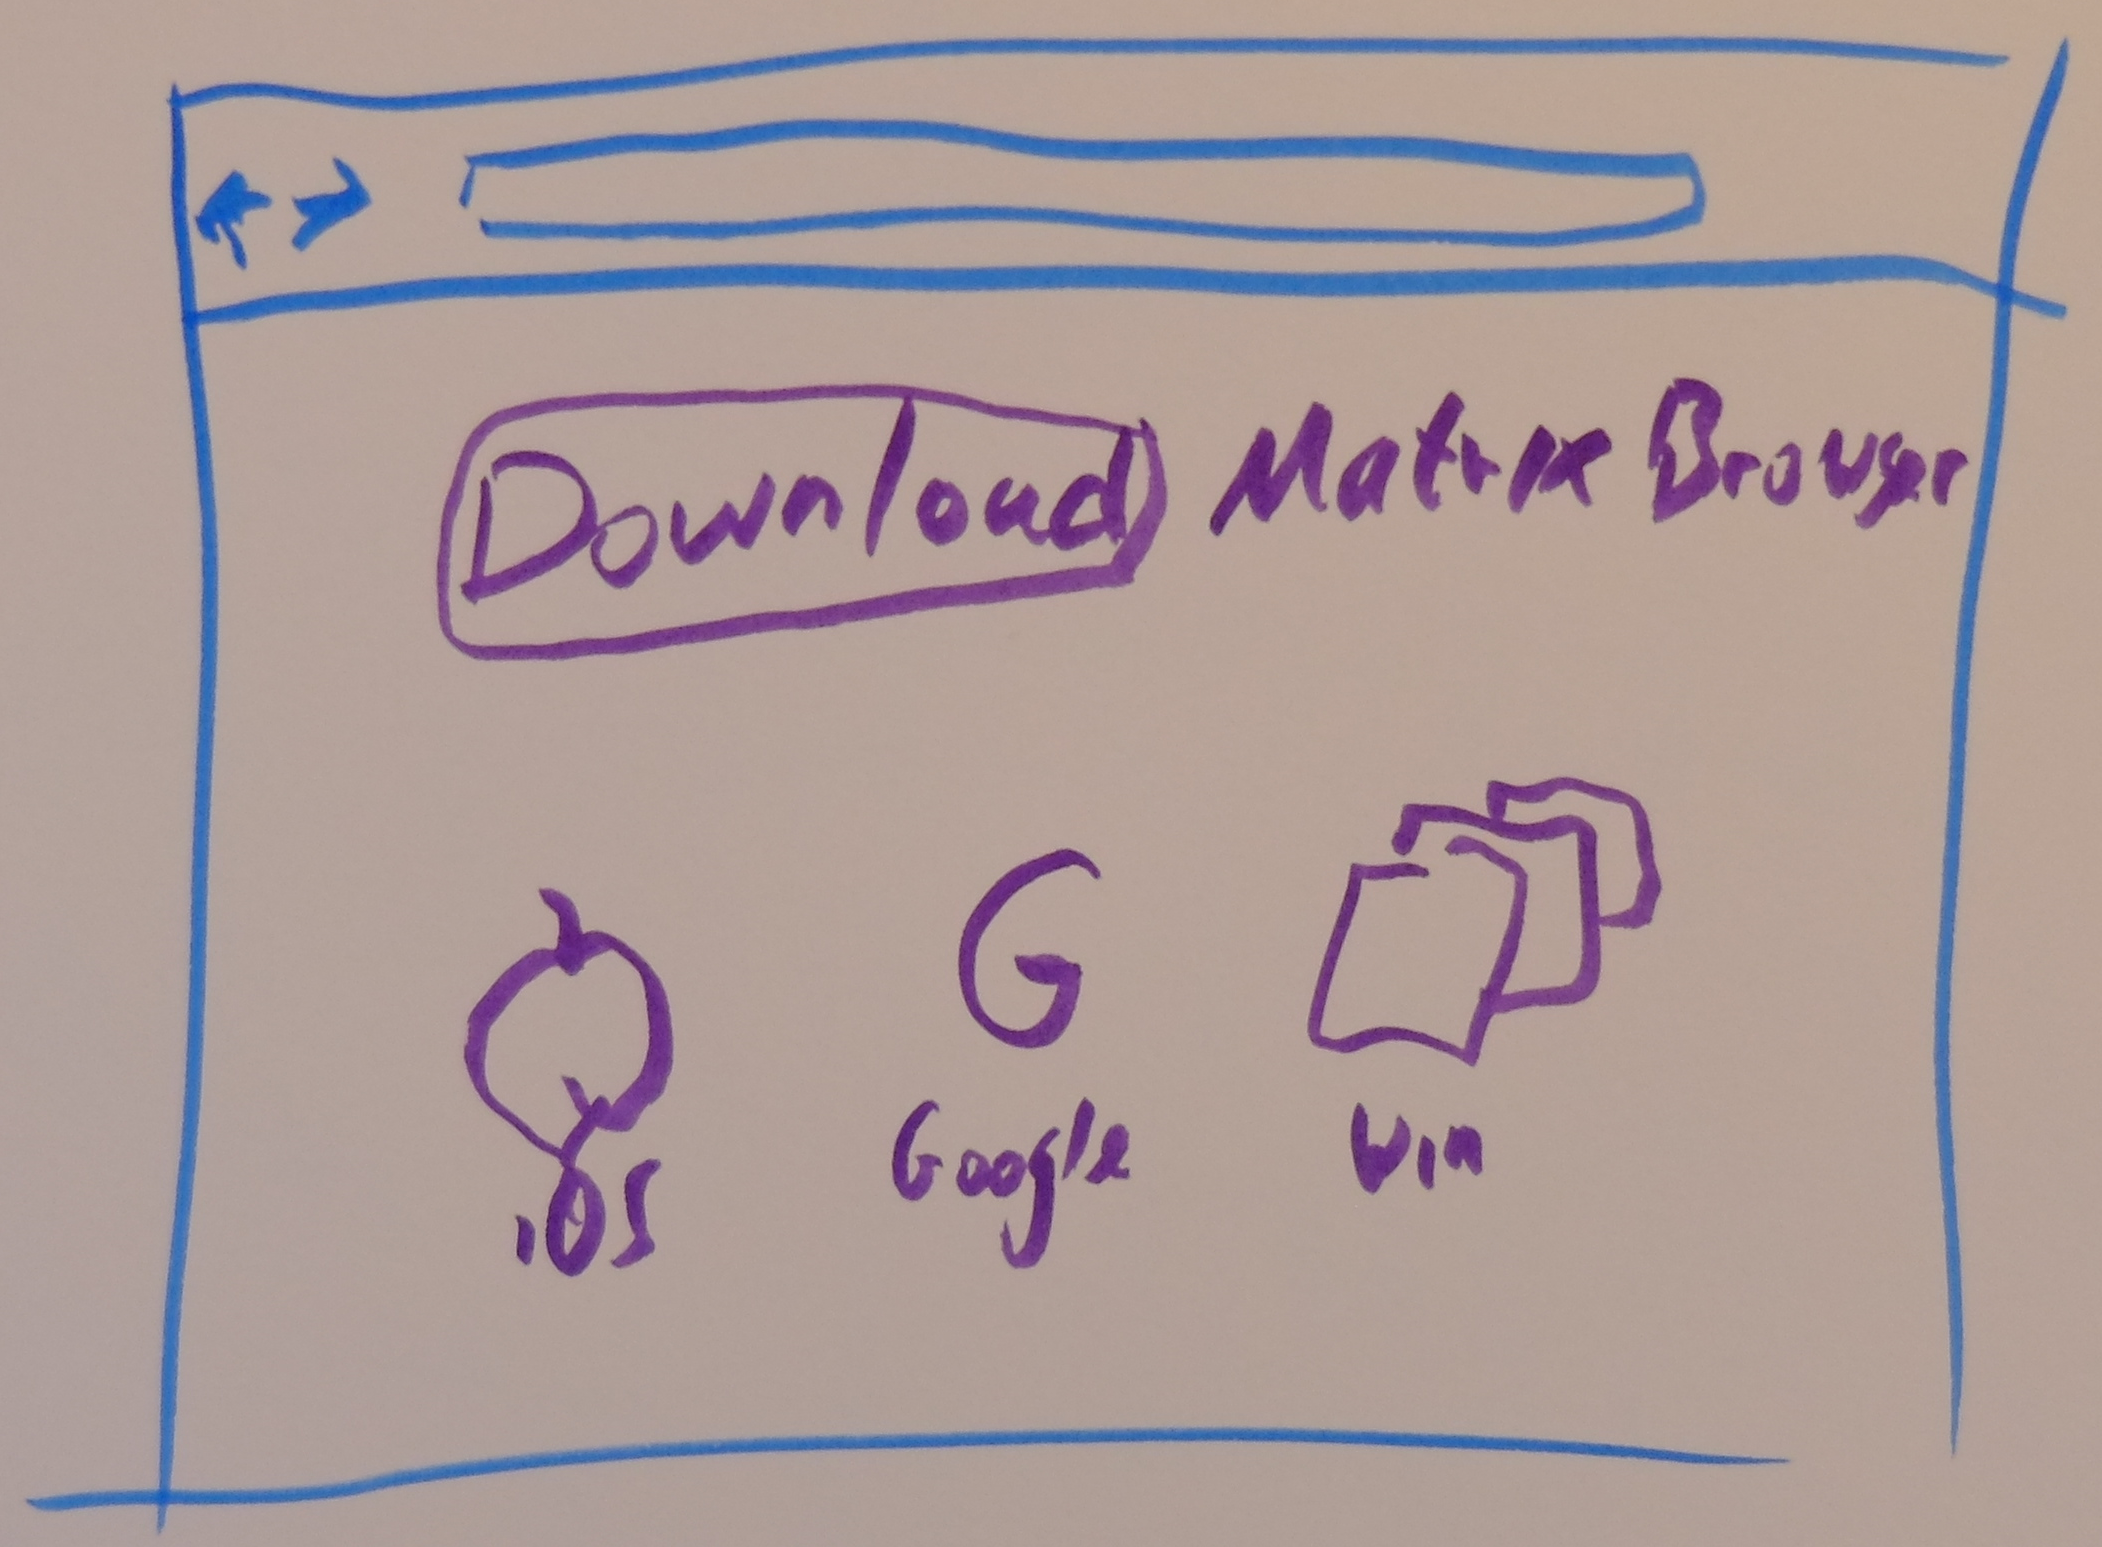 Download Matrix Browser
G
iOS Google Win